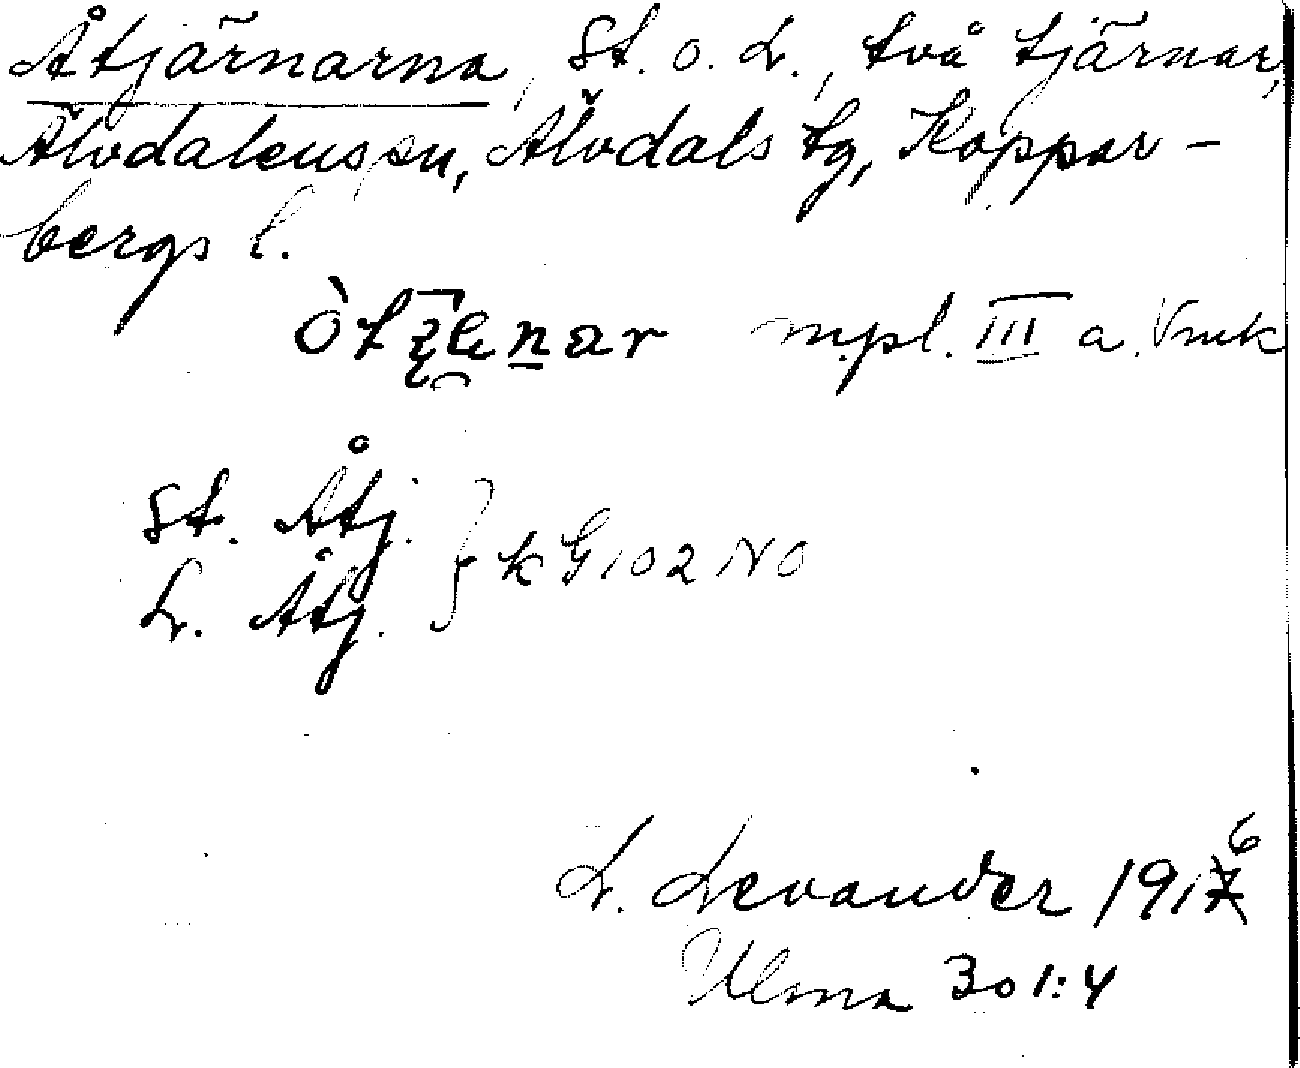 Åtjärnarna, St. o. L., två tjärnar,
Älvdalens sn, Älvdals tg, Koppar-
bergs l.
mpl. III a.
St. Åtj.
L. Åtj. } k G 102 NO
L. Levander 1916
Ulma 301:4